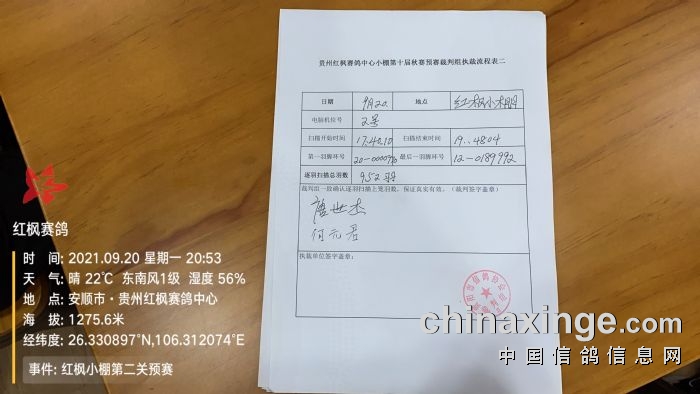 贵州红枫赛鸽中心小棚第十届秋赛预赛裁判组执裁流程表二
日期 9月20 地点 红枫小棚
电脑机位号 2号
扫描开始时间 17:40.10 扫描结束时间 19..4804
第一羽脚环号 最后一羽脚环号 12-0189992
逐羽扫描总羽数 952羽
裁判组一致确认逐羽扫描上笼羽数，保证真实有效。（裁判签字盖章）
唐世杰
何元君
执裁单位签字盖章：
红枫赛鸽
时 间: 2021.09.20 星期一 20:53
天 气: 晴 22℃ 东南风1级 湿度 56%
地 点: 安顺市·贵州红枫赛鸽中心
海 拔: 1275.6米
经纬度: 26.330897°N,106.312074°E
事件: 红枫小棚第二关预赛
chinaxinge.com
中国信鸽信息网